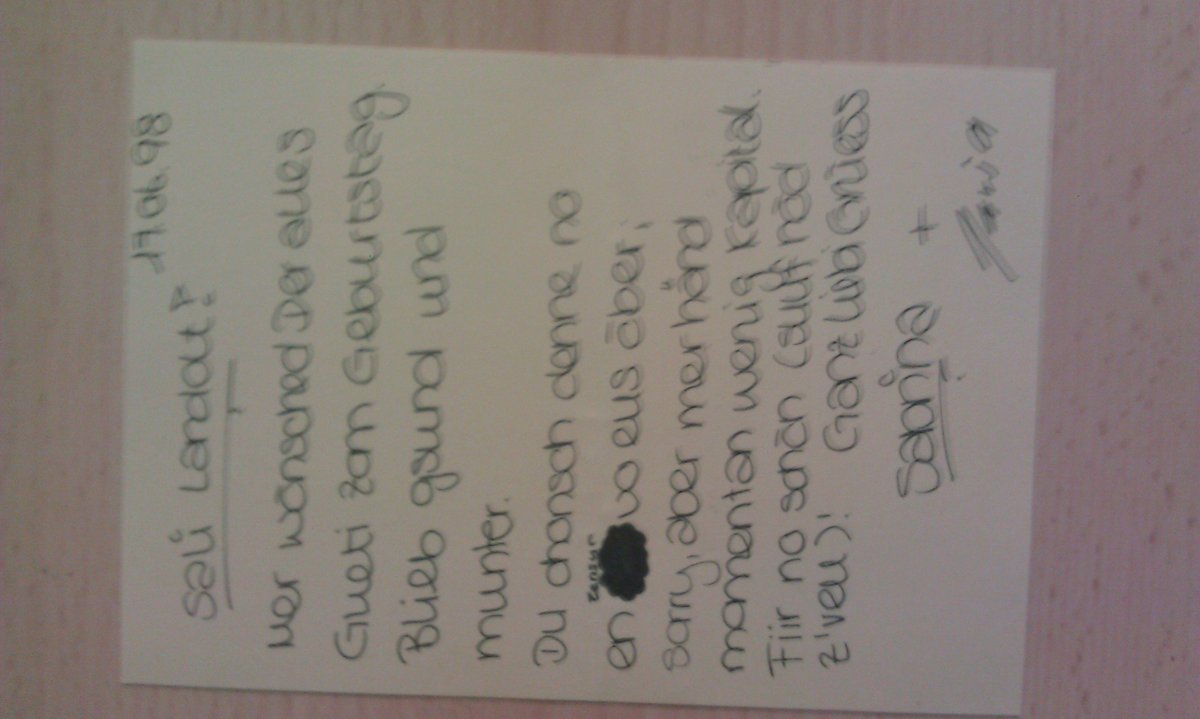 17.06.98
Sali Landolt!
Mer wönsched Der alles
Gueti zom Geburtstag.
Blieb gsund und
munter.
Du chonsch denne no
zensur
en vo eus öber,
Sorry, aber mer händ
momentan wenig Kapital.
Fiir no schön (suuf näd
z'vell)! Ganz Liebi Grüess
Sabrina +